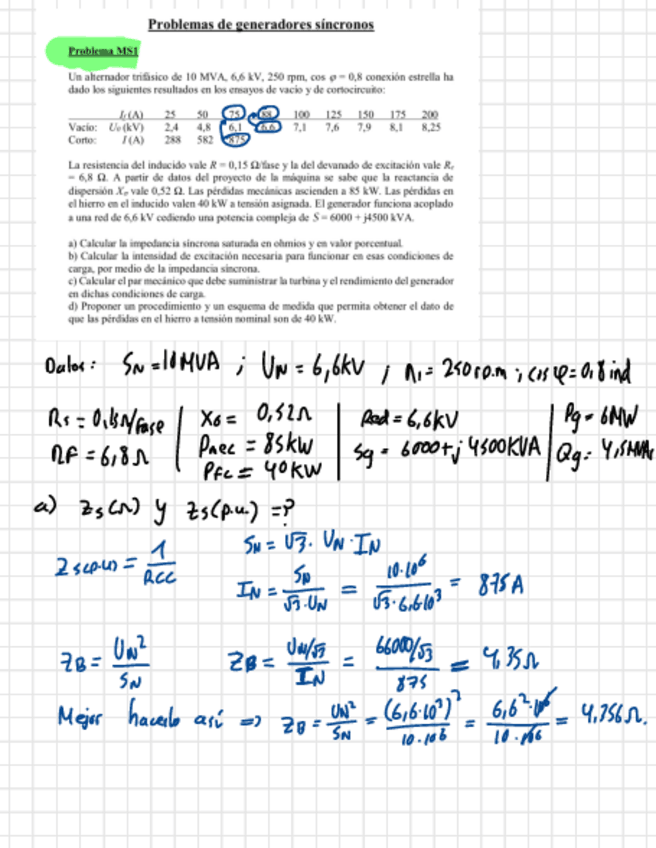 Problemas de generadores síncronos
Problema MS1
Un alternador trifásico de 10 MVA, 6,6 kV, 250 rpm, cos φ = 0,8 conexión estrella ha
dado los siguientes resultados en los ensayos de vacío y de cortocircuito:
If (A) 25 50 75 88 100 125 150 175 200
Vacío: U₀ (kV) 2,4 4,8 6,1 6,6 7,1 7,6 7,9 8,1 8,25
Corto: I (A) 288 582 875
La resistencia del inducido vale R = 0,15 Ω/fase y la del devanado de excitación vale Rₑ
= 6,8 Ω. A partir de datos del proyecto de la máquina se sabe que la reactancia de
dispersión Xσ vale 0,52 Ω. Las pérdidas mecánicas ascienden a 85 kW. Las pérdidas en
el hierro en el inducido valen 40 kW a tensión asignada. El generador funciona acoplado
a una red de 6,6 kV cediendo una potencia compleja de S = 6000 + j4500 kVA.
a) Calcular la impedancia síncrona saturada en ohmios y en valor porcentual.
b) Calcular la intensidad de excitación necesaria para funcionar en esas condiciones de
carga, por medio de la impedancia síncrona.
c) Calcular el par mecánico que debe suministrar la turbina y el rendimiento del generador
en dichas condiciones de carga.
d) Proponer un procedimiento y un esquema de medida que permita obtener el dato de
que las pérdidas en el hierro a tensión nominal son de 40 kW.
Datos: SN = 10MVA ; UN = 6,6kV ; n1 = 250 r.p.m ; cos φ = 0,8 ind
Rs = 0,15Ω/fase | Xσ = 0,52Ω | Red = 6,6kV | Pg = 6MW
RF = 6,8Ω | Pmec = 85kW | Sg = 6000+j4500KVA | Qg = 4,5MVAr
PFe = 40KW
a) Zs(Ω) y Zs(p.u.) =?
Zs(p.u) = 1/RCC SN = √3 · UN · IN
IN = SN/√3·UN = 10·10⁶/√3·6,6·10³ = 875A
ZB = UN²/SN ZB = UN/√3/IN = 66000/√3/875 = 4,35Ω
Mejor hacerlo así => ZB = UN²/SN = (6,6·10³)²/10·10⁶ = 6,6²·10⁶/10·10⁶ = 4,356Ω.